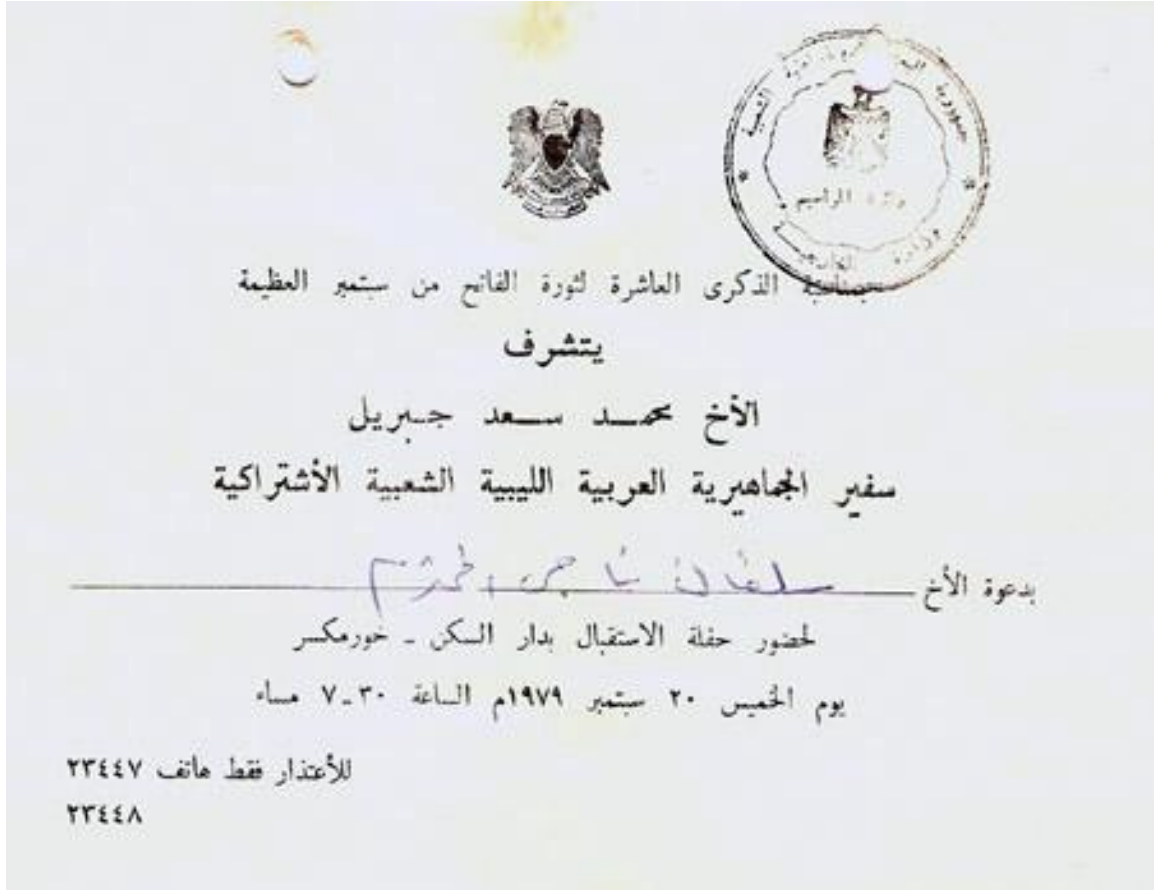 جمهورية اليمن الديمقراطية الشعبية
دائرة المراسيم
وزارة الخارجية
بمناسبة الذكرى العاشرة لثورة الفاتح من سبتمبر العظيمة
يتشرف
الأخ محمد سعد جبريل
سفير الجماهيرية العربية الليبية الشعبية الأشتراكية
بدعوة الأخ سلطان ناجي
لحضور حفلة الاستقبال بدار السكن ـ خورمكسر
يوم الخميس ٢٠ سبتمبر ١٩٧٩م الساعة ٣٠ـ٧ مساء
للأعتذار فقط هاتف ٢٣٤٤٧
٢٣٤٤٨